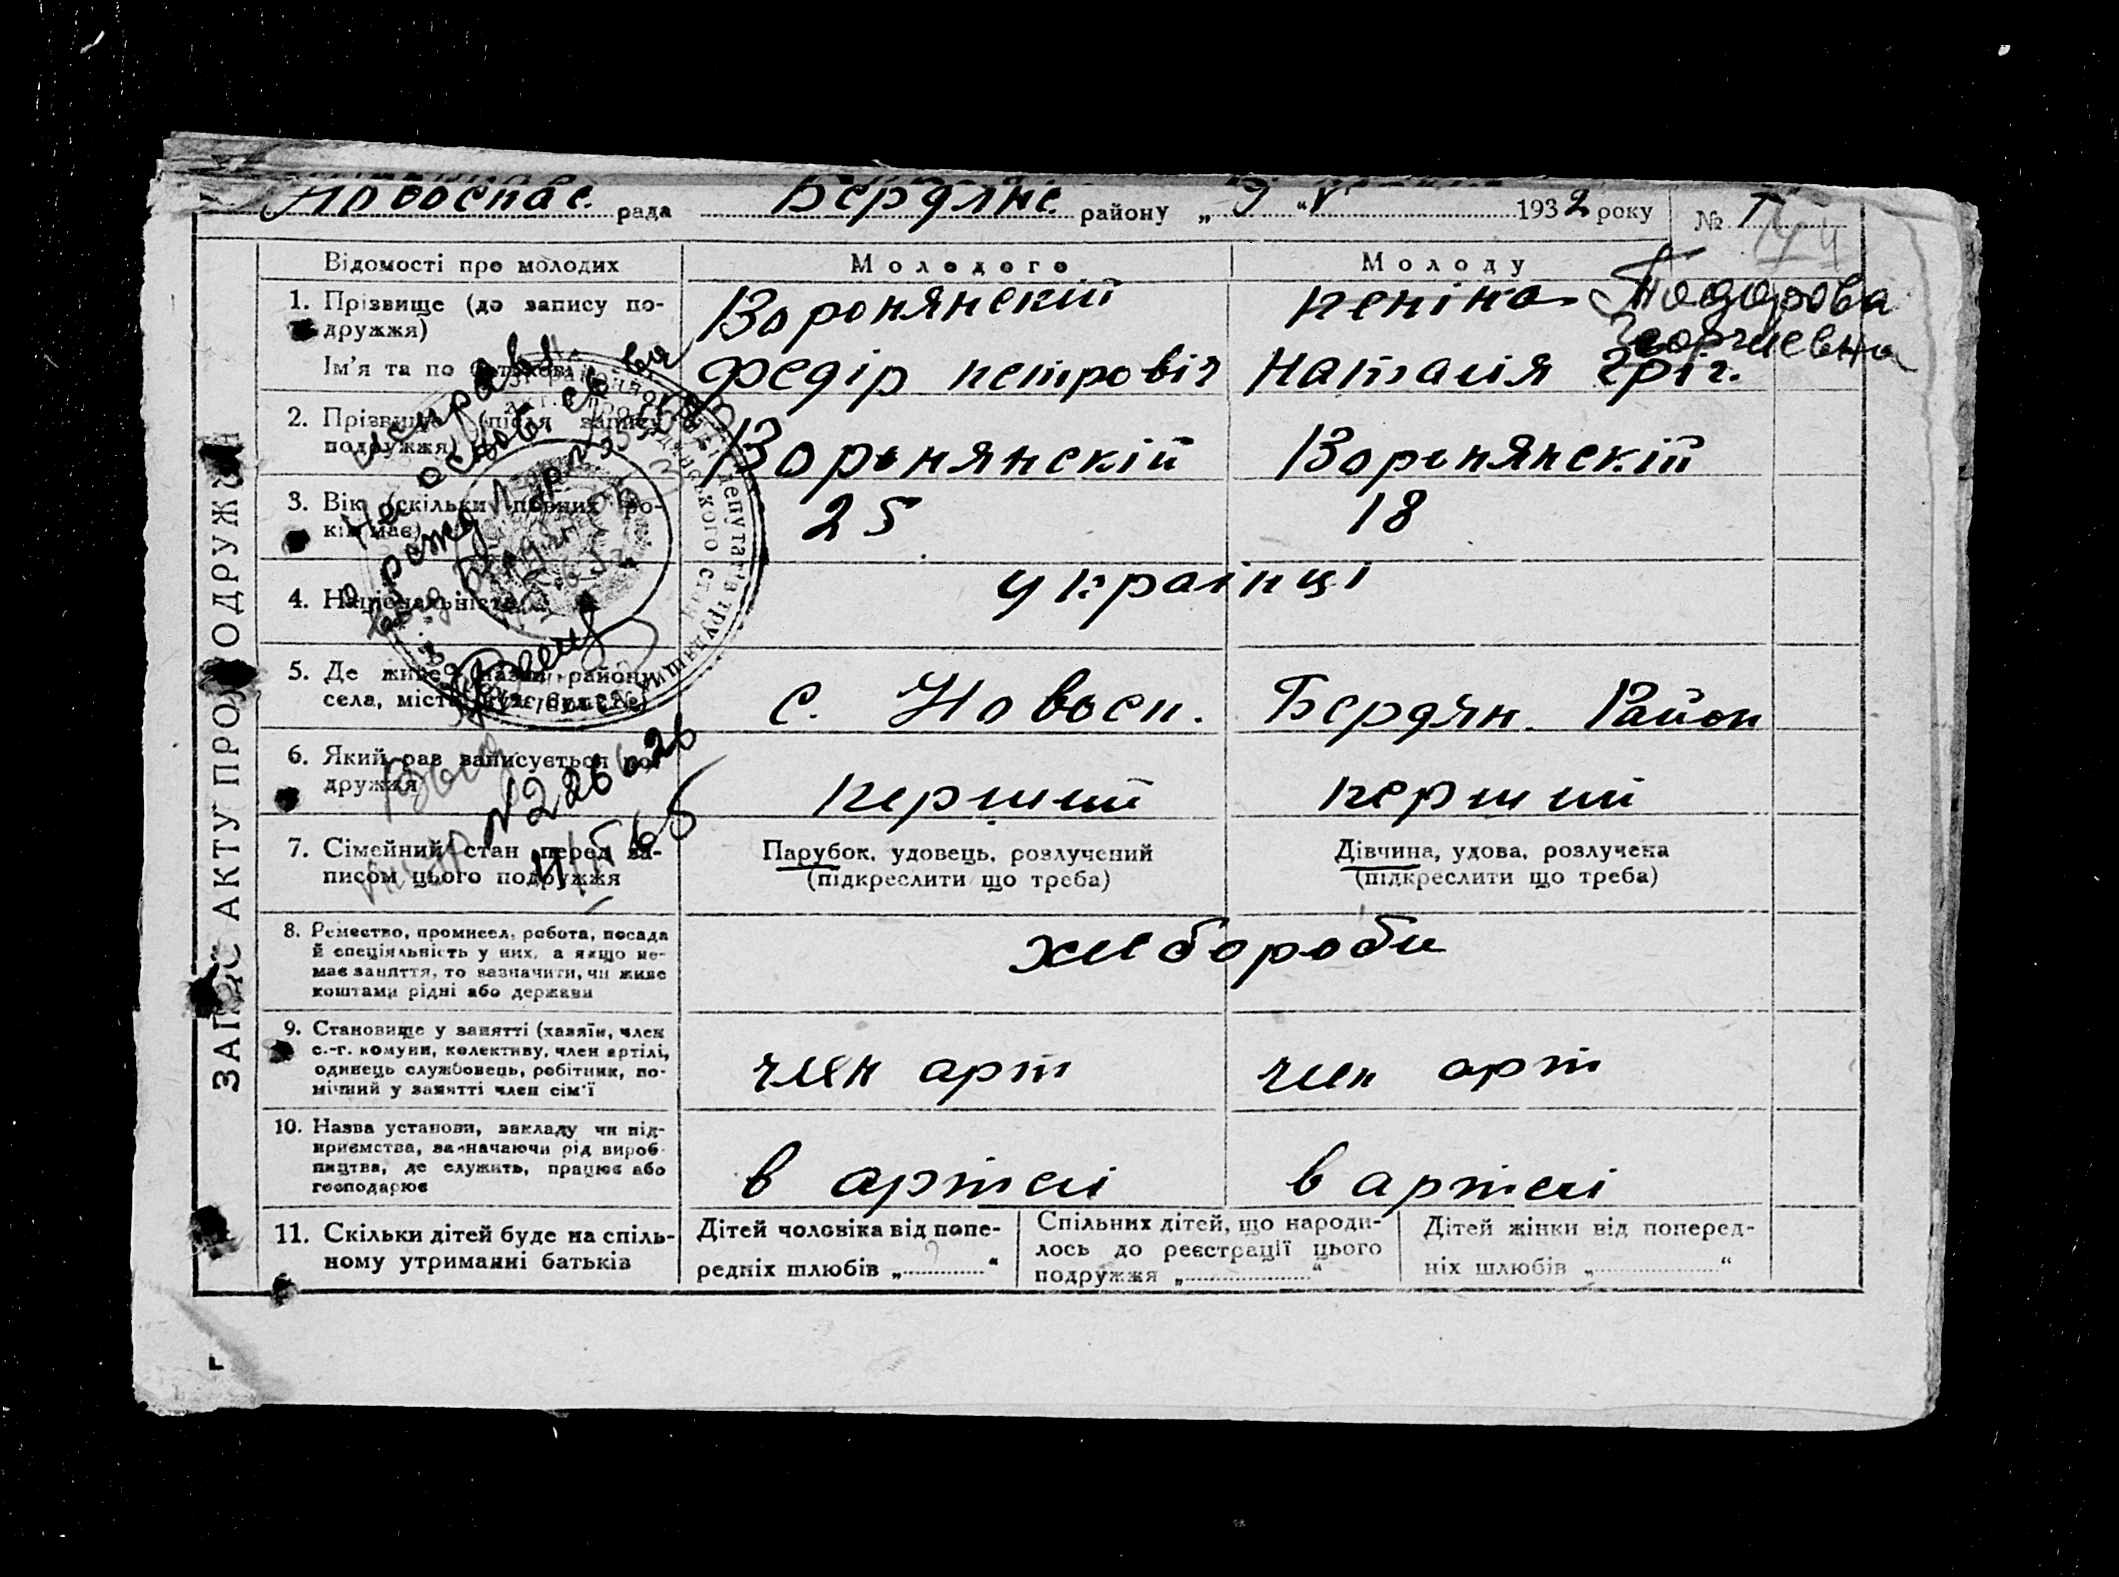 Новоспас. рада Бердянс. району „ 9 “ V 1932 року № 1
ЗАПИС АКТУ ПРО ОДРУЖ
Відомості про молодих Молодого Молоду
1. Прізвище (до запису по-
дружжя) Воронянский пеніна Тодорова
Георгиевна
Ім'я та по батькові федір петровіч Наталія гріг.
2. Прізвище (після запису
подружжя) Воронянскій Воронянскій
3. Вік (скільки повних ро-
ків має) 25 18
4. Національність українці
5. Де живе (назва району,
села, міста, с. Новосп. Бердян. Район
6. Який раз записується по-
дружжя перший перший
7. Сімейний стан перед за-
писом цього подружжя
Парубок, удовець, розлучений
(підкреслити що треба)
Дівчина, удова, розлучена
(підкреслити що треба)
8. Ремество, промисел, робота, посада
й спеціяльність у них, а якщо не-
має заняття, то зазначити, чи живе
коштами рідні або держави
хліборобы
9. Становище у занятті (хазяїн, член
с.-г. комуни, колективу, член артілі,
одинець службовець, робітник, по-
мічний у занятті член сім'ї
член арт член арт
10. Назва установи, закладу чи під-
приємства, зазначаючи рід вироб-
ництва, де служить, працює або
господарює
в артелі в артелі
11. Скільки дітей буде на спіль-
ному утриманні батьків
Дітей чоловіка від попе-
редніх шлюбів „ “
Спільних дітей, що народи-
лось до реєстрації цього
подружжя „ “
Дітей жінки від поперед-
ніх шлюбів „ “
исправл.
На основ. св-ва
о рожд
депутатів трудящих